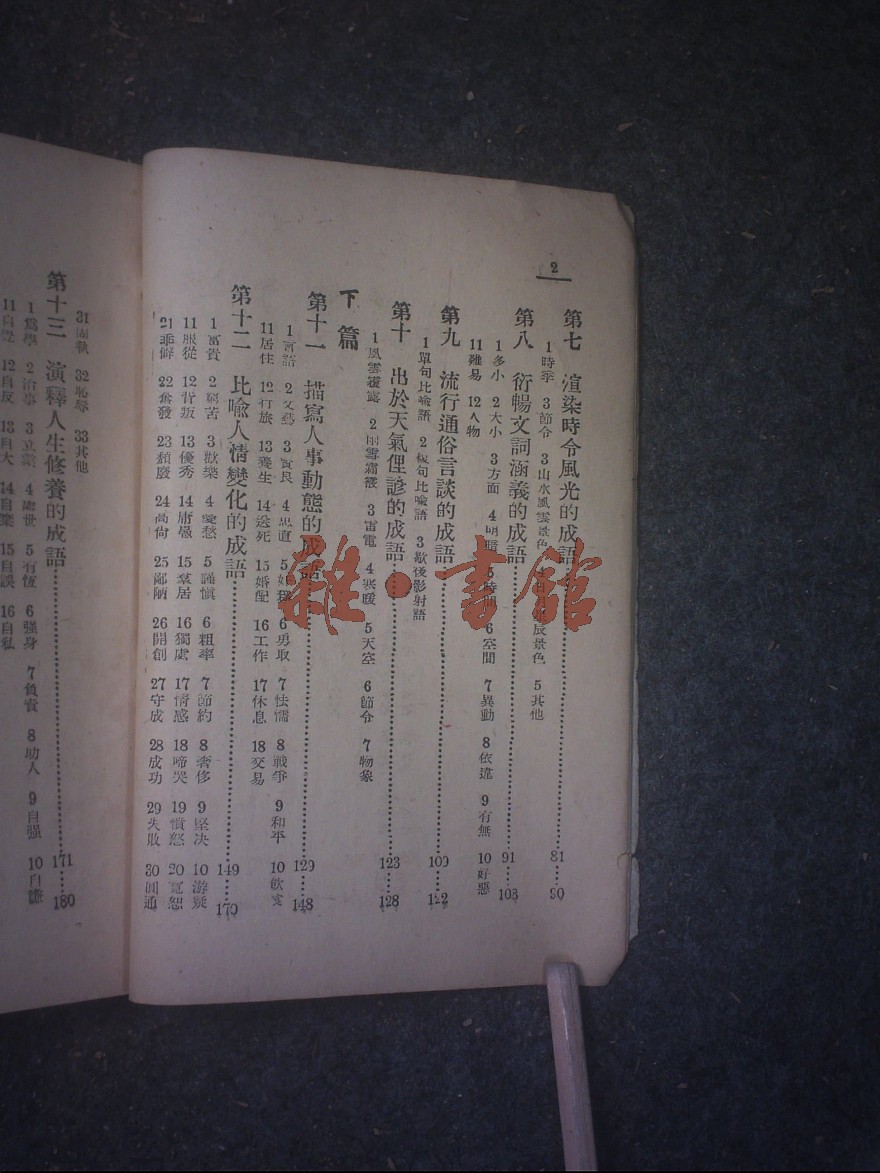 2
第七 渲染時令風光的成語……81……90
1時季 3節令 3山水風雲景色 辰景色 5其他
第八 衍暢文詞涵義的成語……91……108
1多小 2大小 3方面 4明暗 5時間 6空間 7異動 8依違 9有無 10好惡
11難易 12人物
第九 流行通俗言談的成語……109……122
1單句比喻語 2複句比喻語 3歇後影射語
第十 出於天氣俚諺的成語……123……128
1風雲霧露 2雨雪霜霰 3雷電 4寒暖 5天空 6節令 7物象
下篇
第十一 描寫人事動態的成語……129……148
1言語 2文藝 3賢良 4忠直 6勇敢 7怯懦 8戰爭 9和平 10飲食
11居住 12行旅 13養生 14送死 15婚配 16工作 17休息 18交易
第十二 比喻人情變化的成語……149……170
1富貴 2窮苦 3歡樂 4憂愁 5謹慎 6粗率 7節約 8奢侈 9堅决 10游疑
11服從 12背叛 13優秀 14庸愚 15羣居 16獨處 17情感 18啼哭 19憤怒 20寬恕
21乖僻 22奮發 23頹廢 24高尙 25鄙陋 26開創 27守成 28成功 29失敗 30圓通
31固執 32恥辱 33其他
第十三 演釋人生修養的成語……171……180
1爲學 2治事 3立業 4處世 5有恆 6强身 7負責 8助人 9自强 10自謙
11自覺 12自反 13自大 14自棄 15自誤 16自私
雜·書館